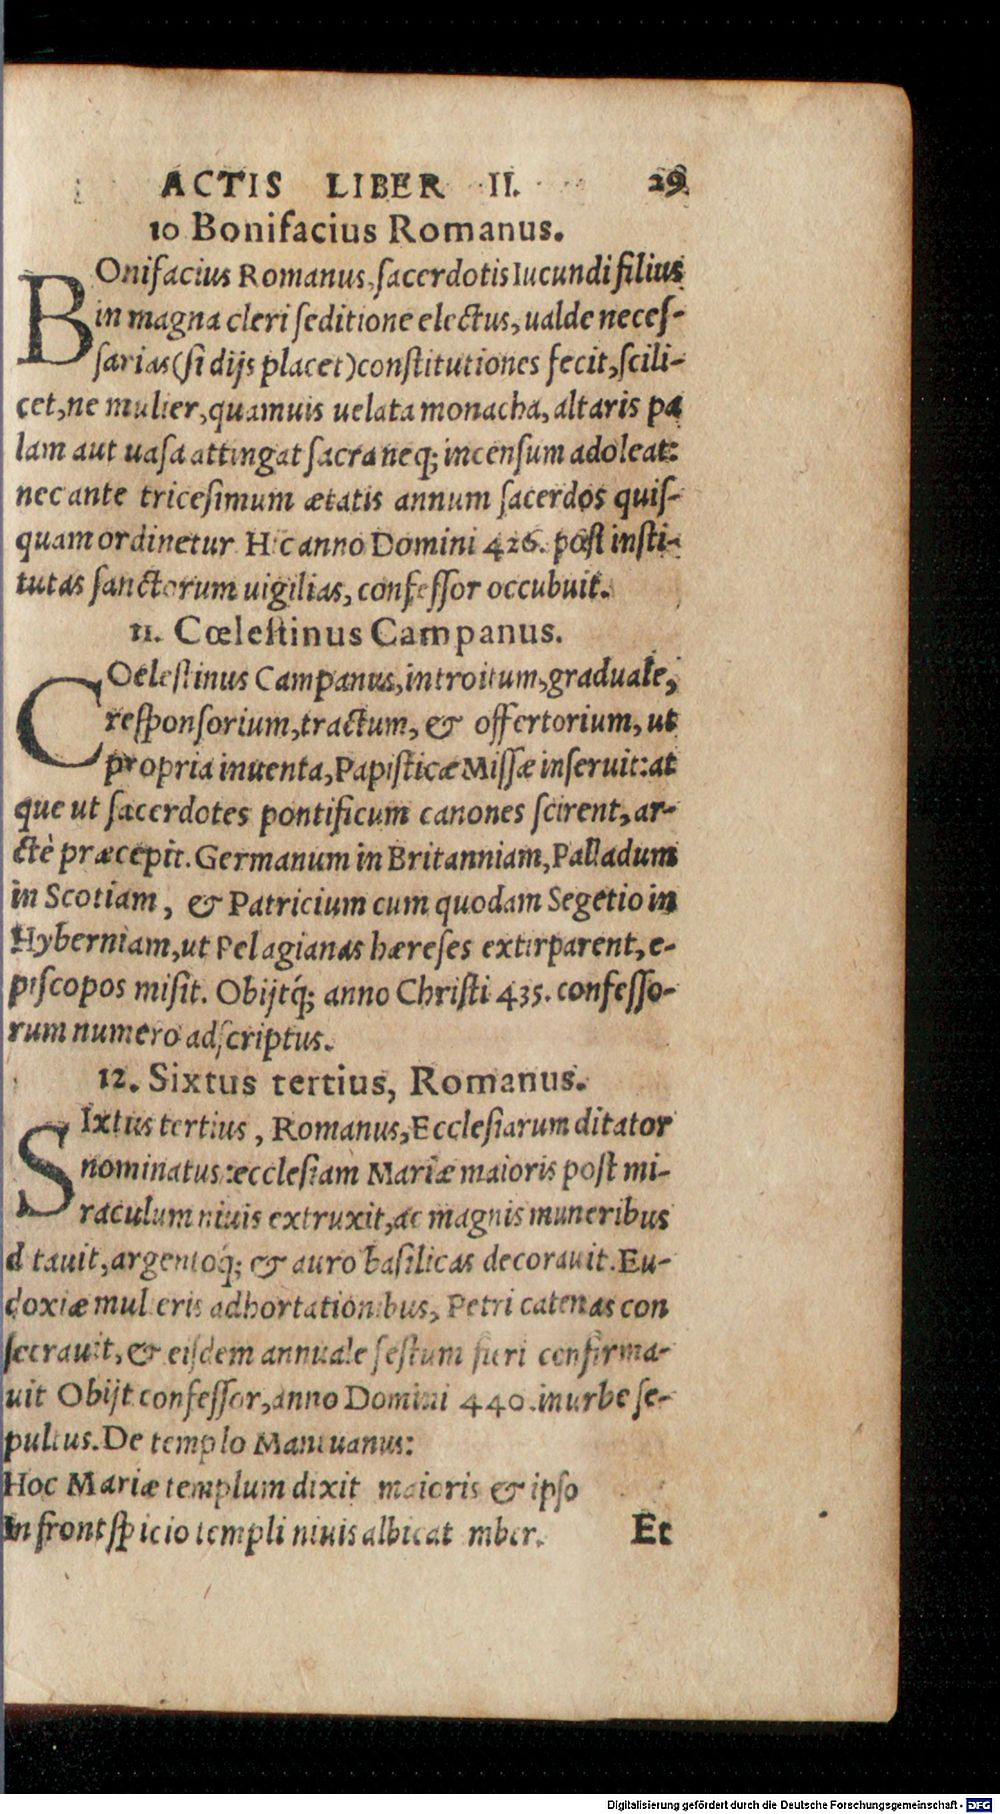 ACTIS LIBER II. 29
10 Bonifacius Romanus.
BOnifacius Romanus, sacerdotis Iucundi filius
in magna cleri seditione electus, ualde neces-
sarias (si dijs placet) constitutiones fecit, scili-
cet, ne mulier, quamuis uelata monacha, altaris pa
lam aut uasa attingat sacra neq; incensum adoleat:
nec ante tricesimum ætatis annum sacerdos quis-
quam ordinetur Hic anno Domini 426. post insti-
tutas sanctorum uigilias, confessor occubuit.
11. Cœlestinus Campanus.
COelestinus Campanus, introitum, graduale,
responsorium, tractum, & offertorium, ut
propria inuenta, Papisticæ Missæ inseruit: at
que ut sacerdotes pontificum canones scirent, ar-
ctè præcepit. Germanum in Britanniam, Palladum
in Scotiam, & Patricium cum quodam Segetio in
Hyberniam, ut Pelagianas hæreses extirparent, e-
piscopos misit. Obijtq́; anno Christi 435. confesso-
rum numero adscriptus.
12. Sixtus tertius, Romanus.
SIxtus tertius, Romanus, Ecclesiarum ditator
nominatus: ecclesiam Mariæ maioris post mi-
raculum niuis extruxit, ac magnis muneribus
ditauit, argentoq́; & auro basilicas decorauit. Eu-
doxiæ mulieris adhortationibus, Petri catenas con
secrauit, & eisdem annuale festum fieri confirma-
uit Obijt confessor, anno Domini 440. in urbe se-
pultus. De templo Mantuanus:
Hoc Mariæ templum dixit maioris & ipso
In frontspicio templi niuis albicat imber.
Et
Digitalisierung gefördert durch die Deutsche Forschungsgemeinschaft - DFG